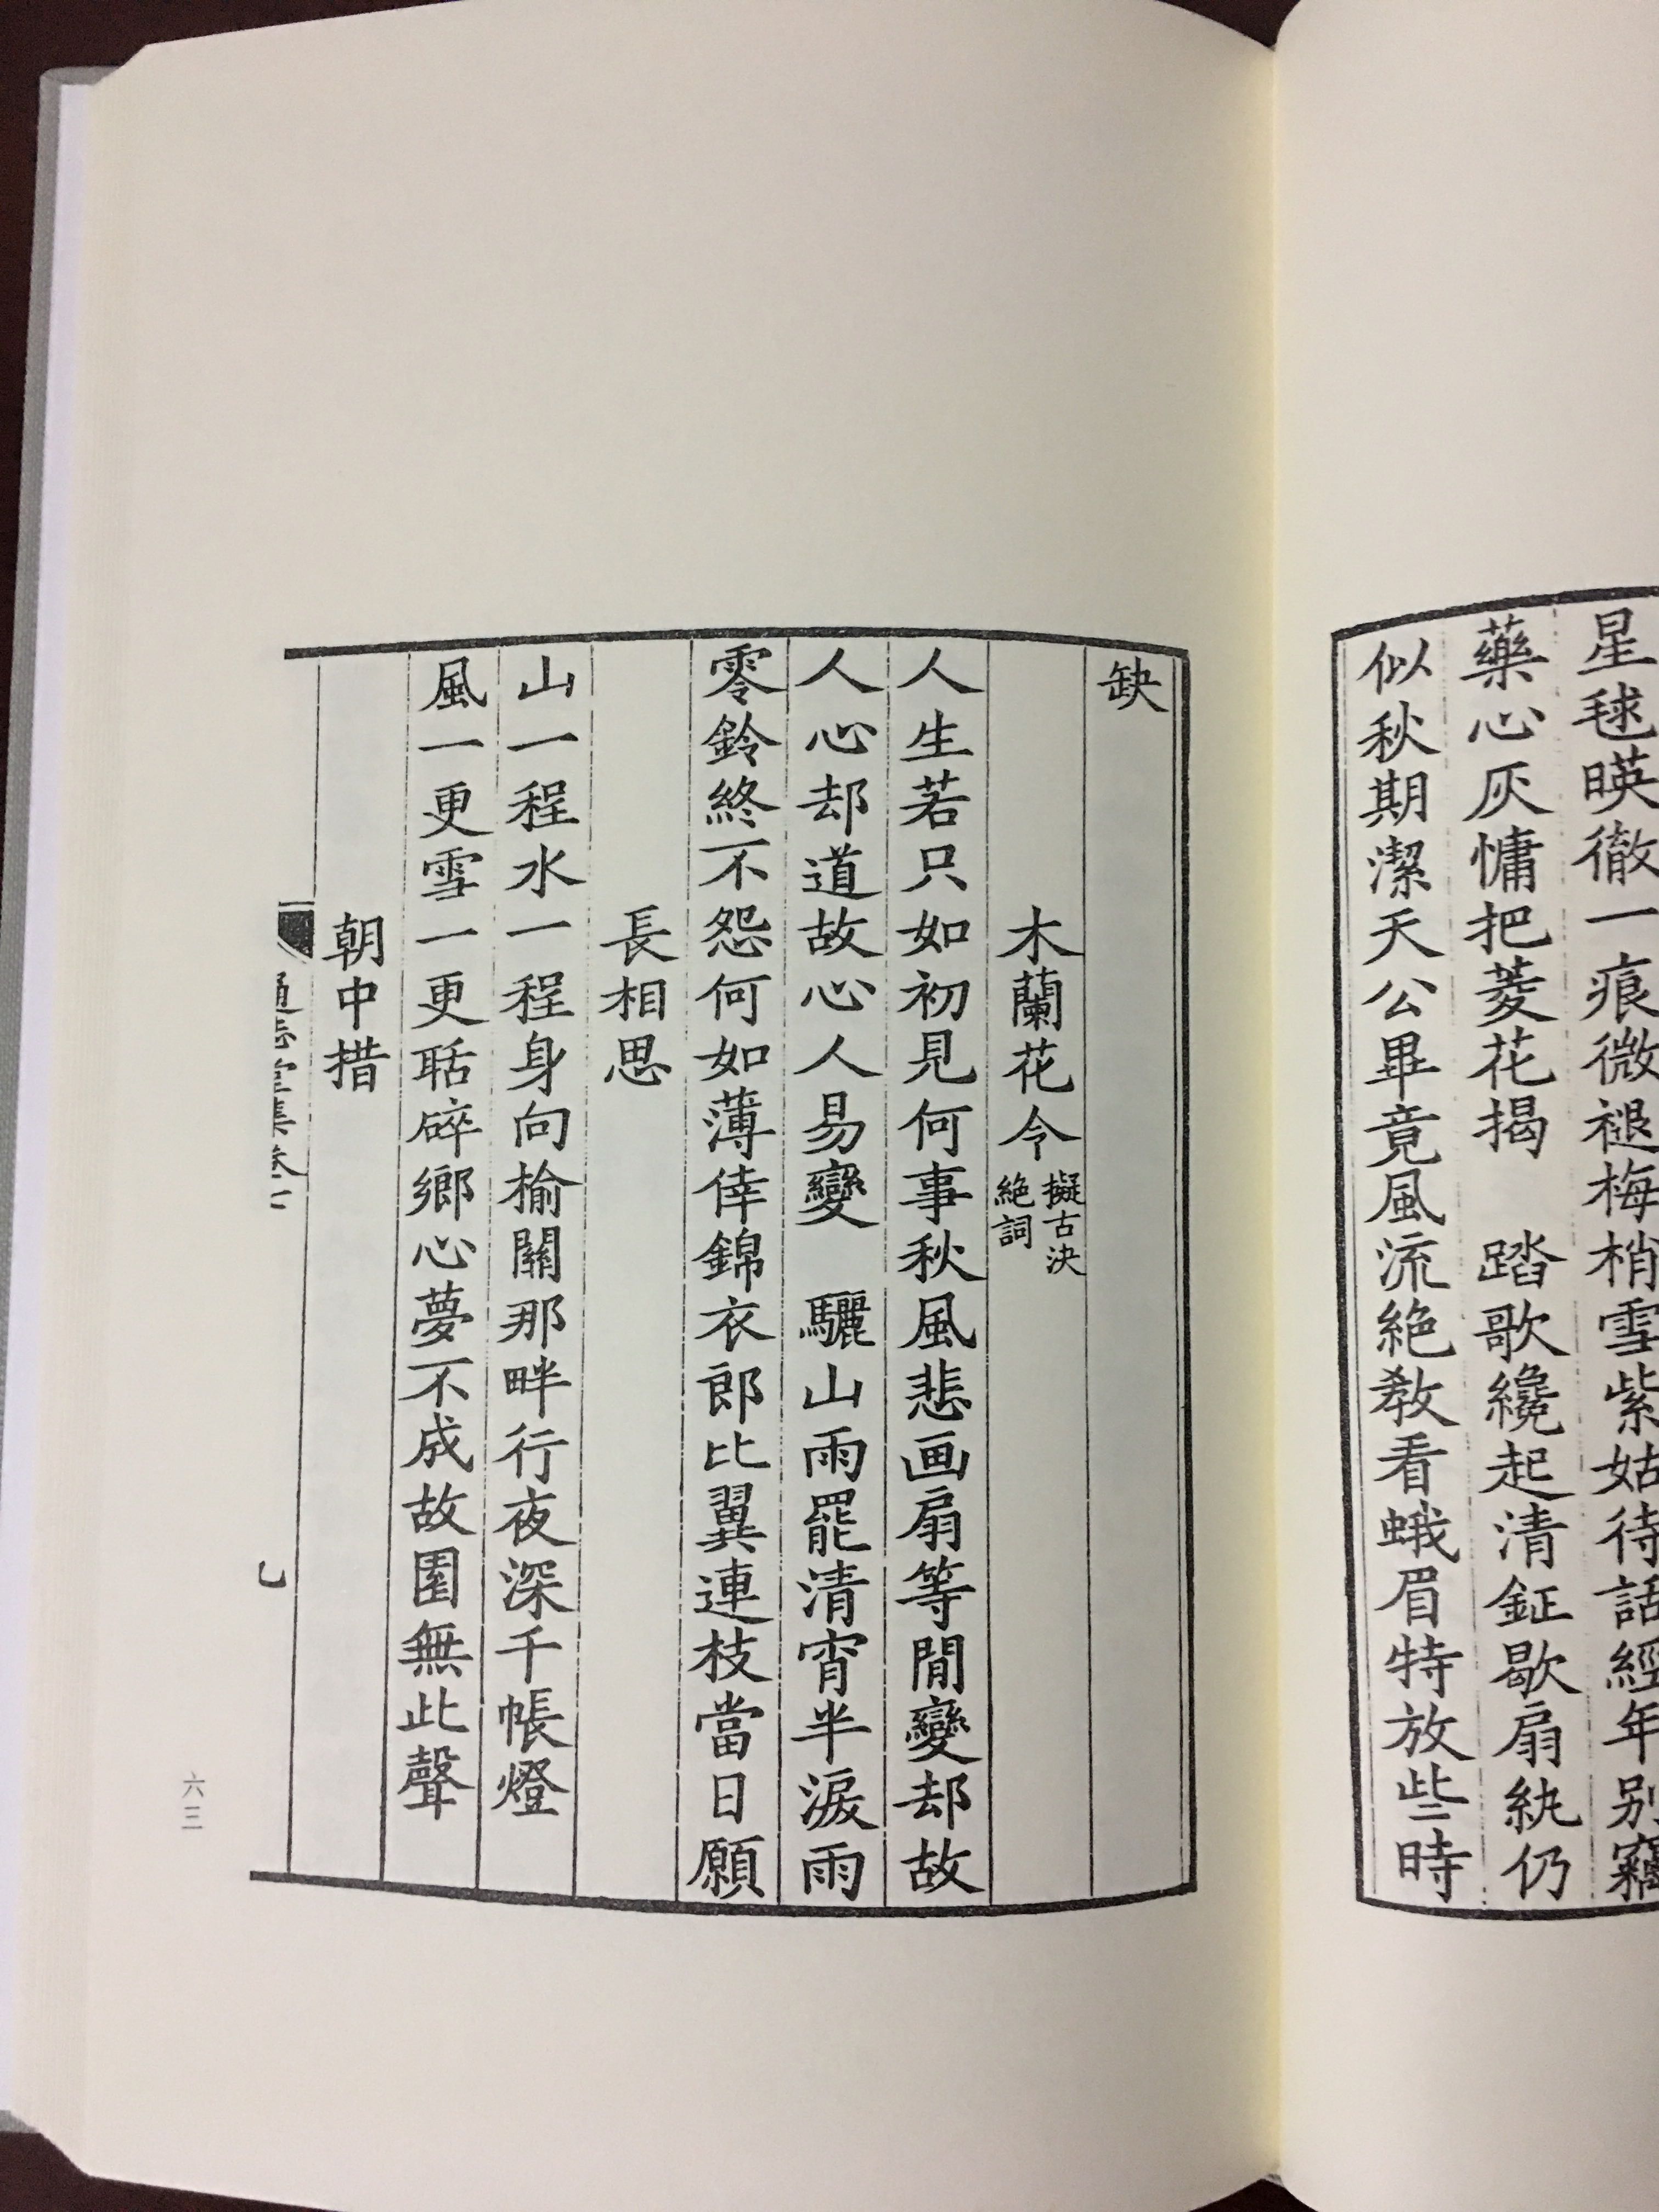 星毬暎徹一痕微褪梅梢雪紫姑待話經年別竊
藥心灰慵把菱花揭　踏歌纔起清鉦歇扇紈仍
似秋期潔天公畢竟風流絶教看蛾眉特放些時
缺
木蘭花令 擬古決絶詞
人生若只如初見何事秋風悲画扇等閒變却故
人心却道故心人易變　驪山雨罷清宵半淚雨
零鈴終不怨何如薄倖錦衣郎比翼連枝當日願
長相思
山一程水一程身向榆關那畔行夜深千帳燈
風一更雪一更聒碎鄉心夢不成故園無此聲
朝中措
通志堂集卷七
六三